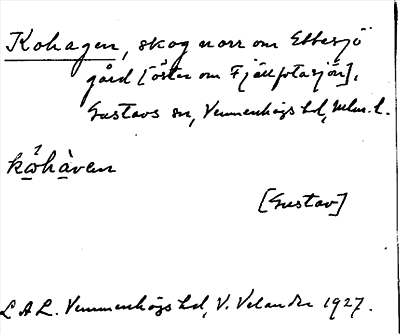 Kohagen, skog norr om Ebbesjö
gård [öster om Fjällfotasjön],
Gustavs sn, Vemmenhögs hd, Mlm. l.
kωhàven
[Gustav]
L A L. Vemmenhögs hd, V. Velander 1927.